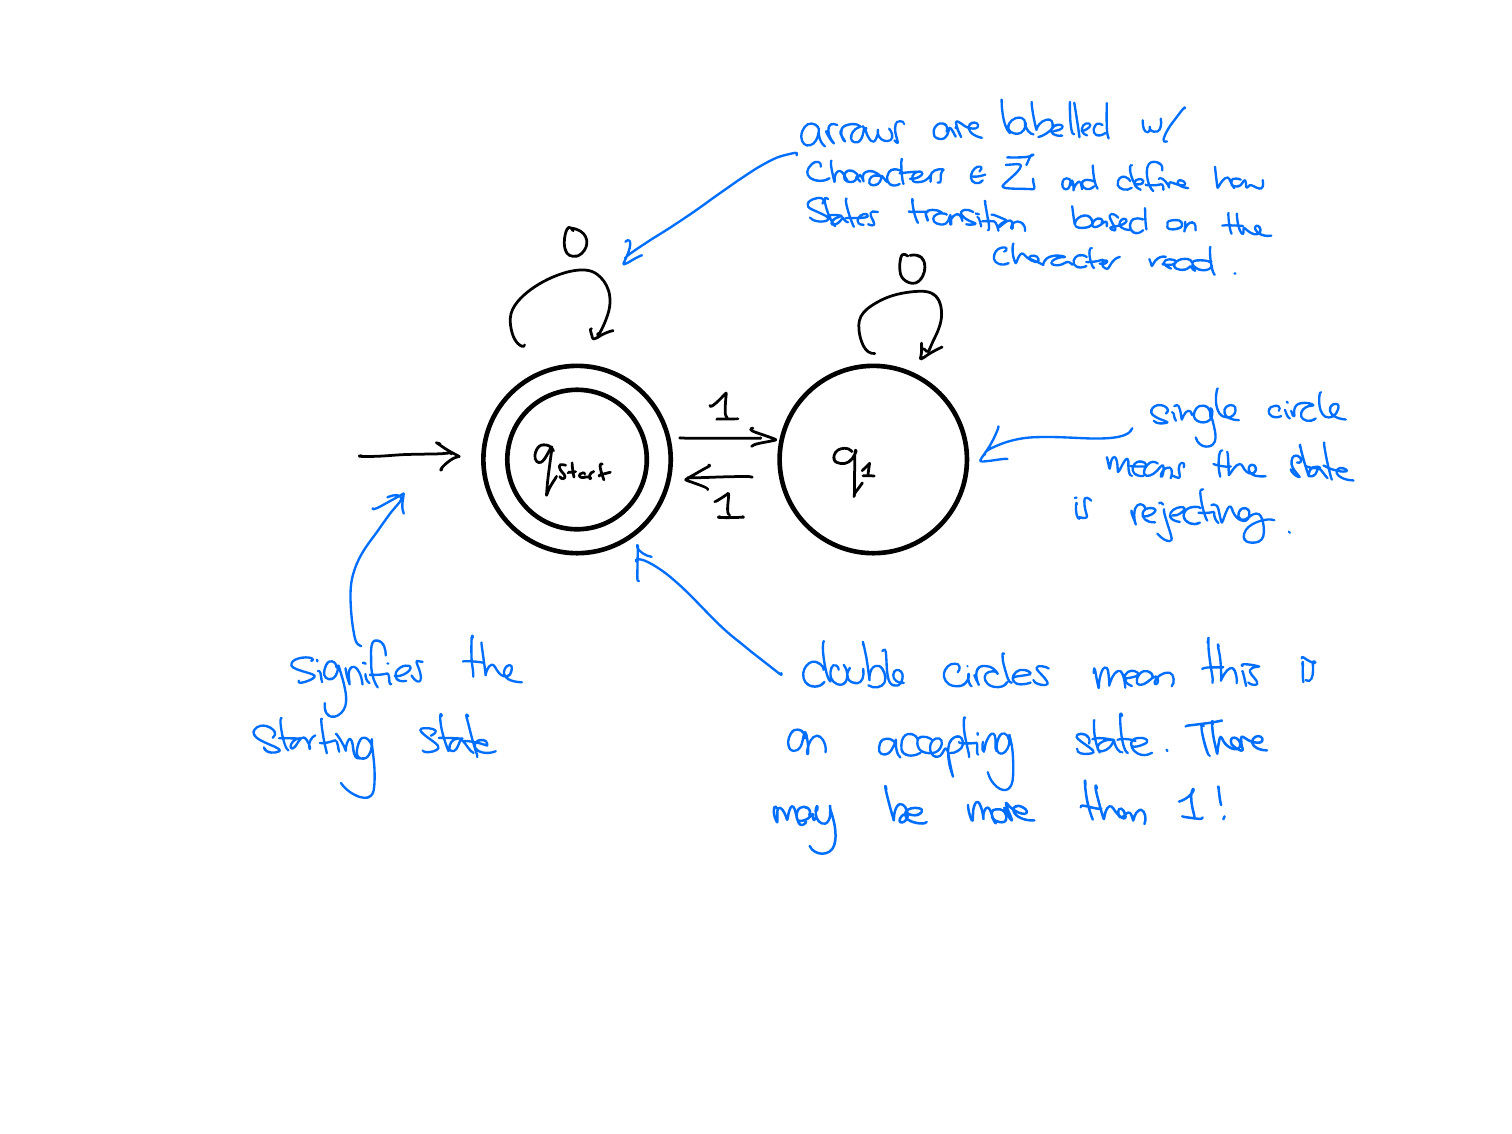 arrows are labelled w/
characters ∈ Σ and define how
states transition based on the
character read.
0
0
1
single circle
means the state
is rejecting.
q start
q1
1
signifies the
starting state
double circles mean this is
an accepting state. There
may be more than 1!